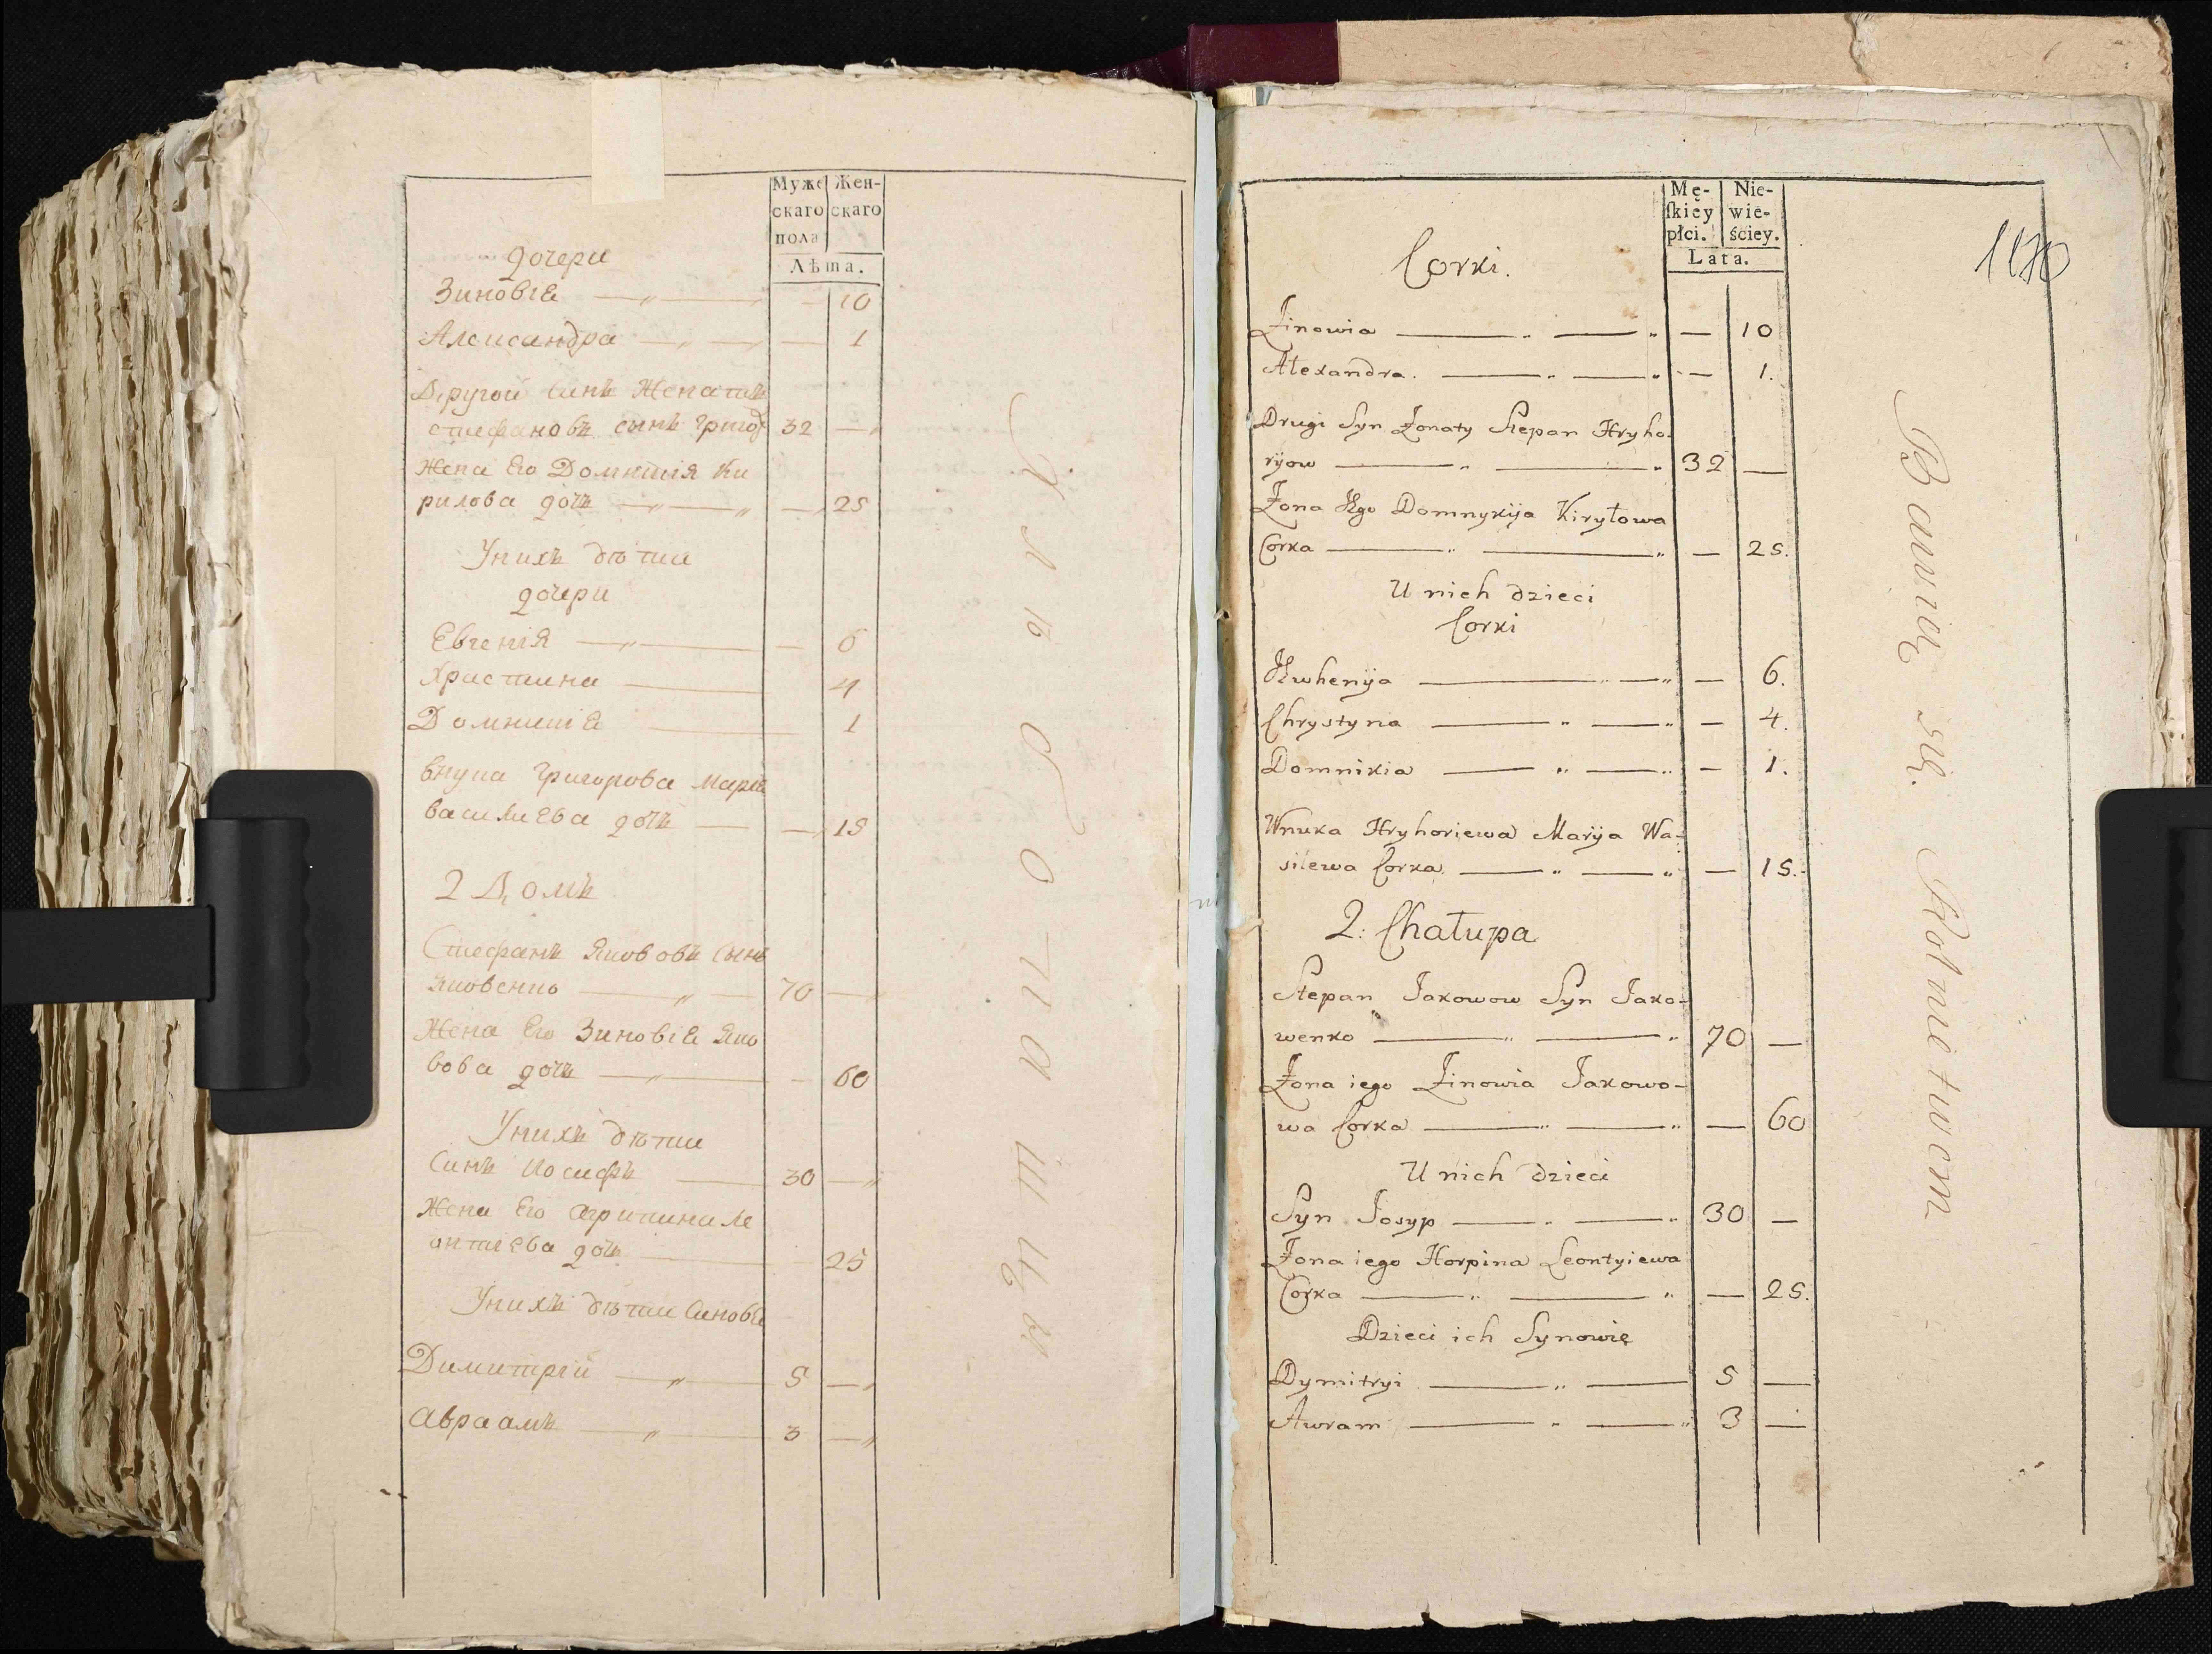 Муже
скаго
пола
Жен-
скаго
Лѣта.
дочери
Зиновіа — 10
Александра — 1
Другой синъ Женатий
стефановъ сынъ григор 32 —
Жена Его Домникія Ки
рилова дочь — 25
Унихъ дѣти
дочери
Евгенія — 6
Христина 4
Домникіа 1
внука Григорова марія
василиева дочь — 15
2 Домъ
Стефанъ Якововъ сынъ
Яковенко 70 —
Жена Его Зиновіа Яко
вова дочь — 60
Унихъ дѣти
Синъ Иосифъ 30 —
Жена Его агрипина Ле
онтіева дочь 25
Унихъ дѣти Синови
Димитрій 5 —
авраамъ 3 —
Mę-
ſkiey
płci.
Nie-
wie-
ściey.
Lata.
1170
Corki.
Zinowia — 10
Alexandra. — 1.
Drugi Syn Zonaty Stepan Hryho-
ryow 32 —
Zona Jego Domnykija Kiryłowa
Corka — 25.
U nich dzieci
Corki
Jewhenija — 6.
Chrystyna — 4.
Domnikia — 1.
Wnuka Hryhoriewa Marija Wa-
silewa Corka. — 15.
2: Chałupa
Stepan Jakowow Syn Jako-
wenko 70 —
Zona iego Zinowia Jakowo-
wa Corka — 60
U nich dzieci
Syn Josyp 30 —
Zona iego Horpina Leontyiewa
Corka — 25.
Dzieci ich Synowie
Dymitryi 5 —
Awram 3 —
Bawią się Rolnictwem